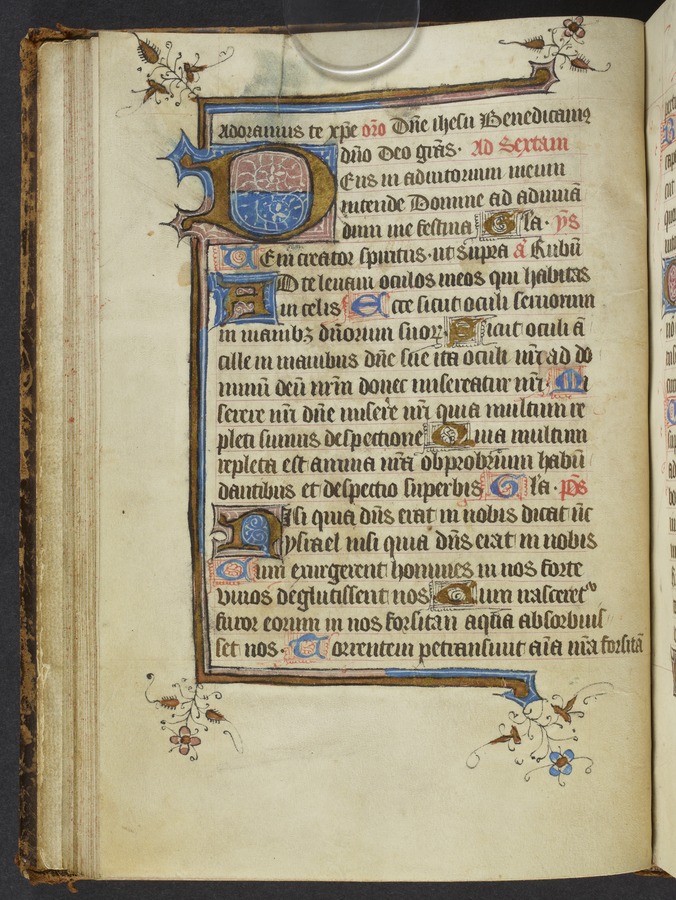 Adoramus te xp̄e or̄o Dn̄e ihesu Benedicamꝯ
dn̄o Deo gr̄as. Ad Sextam
Deus in adiutorium meum
intende Domine ad adiuuā
dum me festina Gl̄a. ỹs
Uem creator spiritus. ut supra ā Rubū
AD te leuaui oculos meos qui habitas
in celis Ecce sicut oculi seruorum
in manibꝫ dn̄orum suorꝝ Sicut oculi ā
cille in manibus dn̄e sue ita oculi nr̄i ad do
minū deū nr̄m donec misereatur nr̄i. Mi
serere nr̄i dn̄e misere᷑ nr̄i quia multum re
pleti sumus despectione Quia multum
repleta est anima nr̄a obprobrium habū
dantibus et despectio superbis Gl̄a. p̄s
Nisi quia dn̄s erat in nobis dicat nc̄
ysrael nisi quia dn̄s erat in nobis
Cum exurgerent homines in nos forte
viuos deglutissent nos Cum irasceret᷑
furor eorum in nos forsitan aqua absorbuis
set nos. Torrentem petransiuit aīa nr̄a forsitā